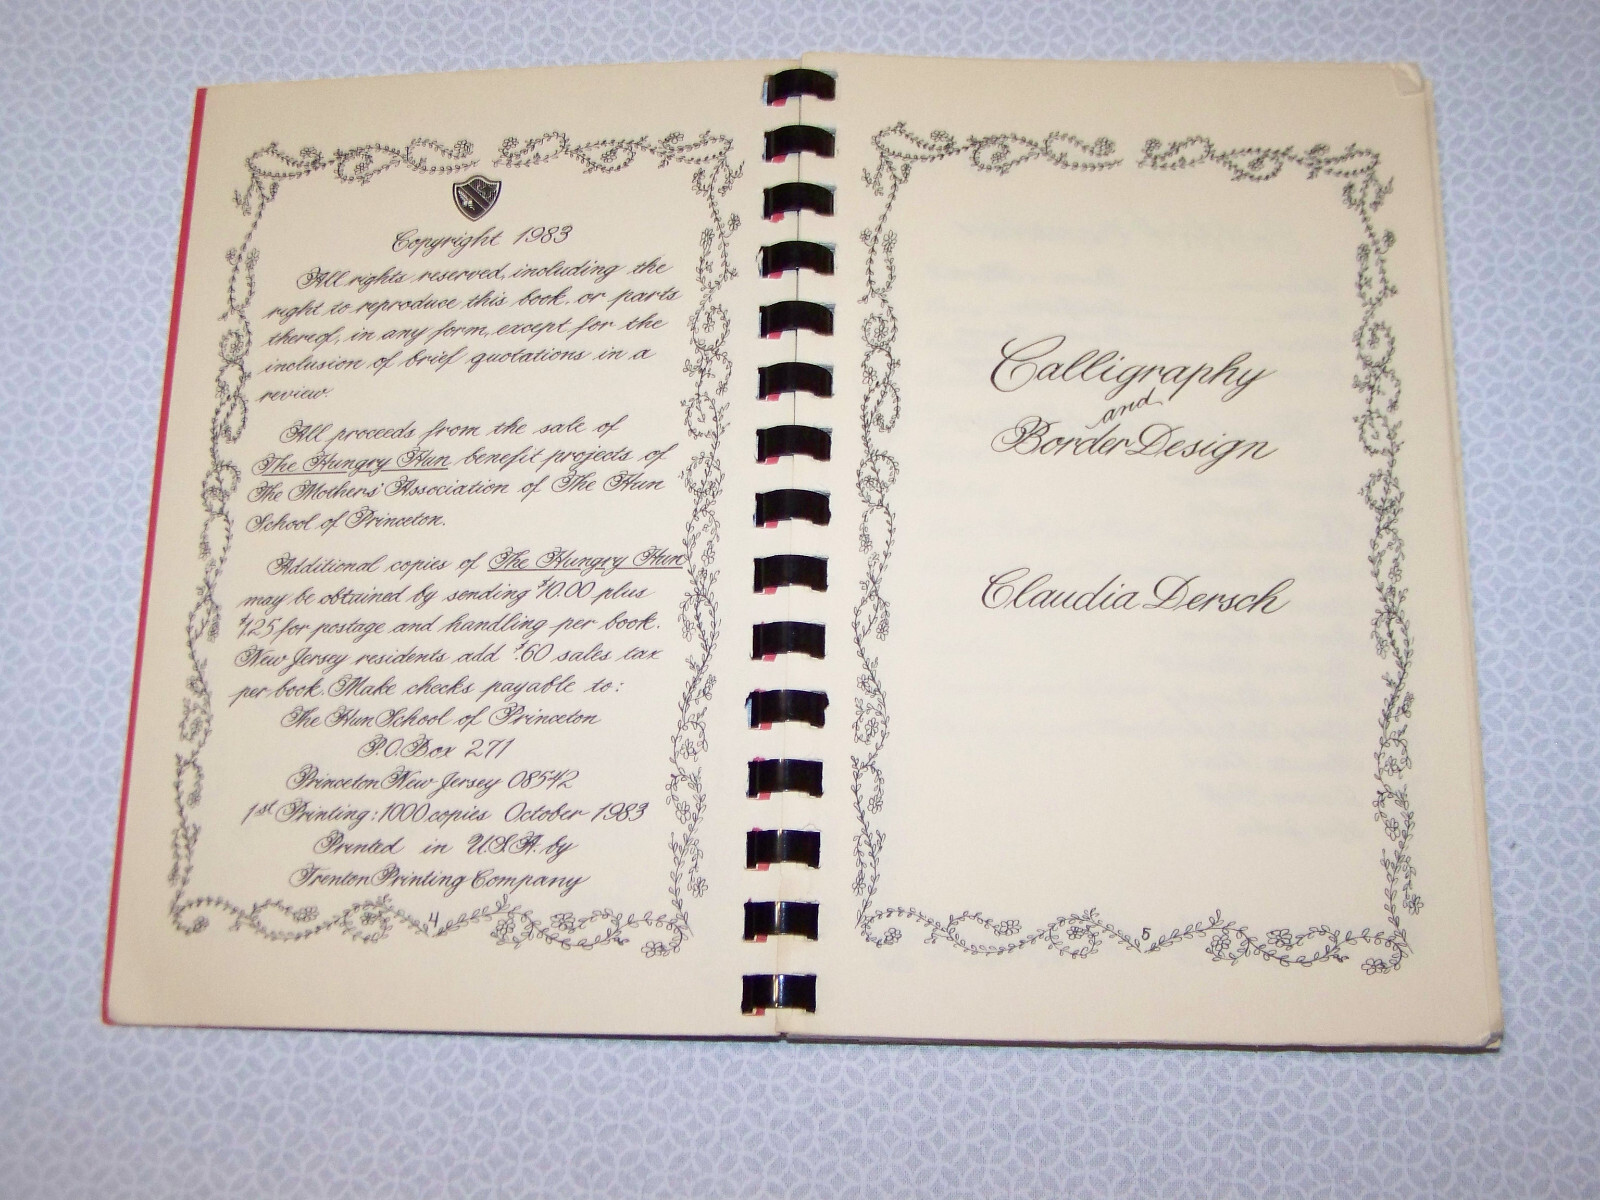 Copyright 1983
All rights reserved, including the
right to reproduce this book, or parts
thereof, in any form, except for the
inclusion of brief quotations in a
review.
All proceeds from the sale of
The Hungry Hun benefit projects of
The Mothers' Association of The Hun
School of Princeton.
Additional copies of The Hungry Hun
may be obtained by sending $10.00 plus
$1.25 for postage and handling per book.
New Jersey residents add $.60 sales tax
per book. Make checks payable to:
The Hun School of Princeton
P.O. Box 271
Princeton New Jersey 08542
1st Printing: 1000 copies October 1983
Printed in U.S.A. by
Trenton Printing Company
4
Calligraphy
and
Border Design
Claudia Dersch
5